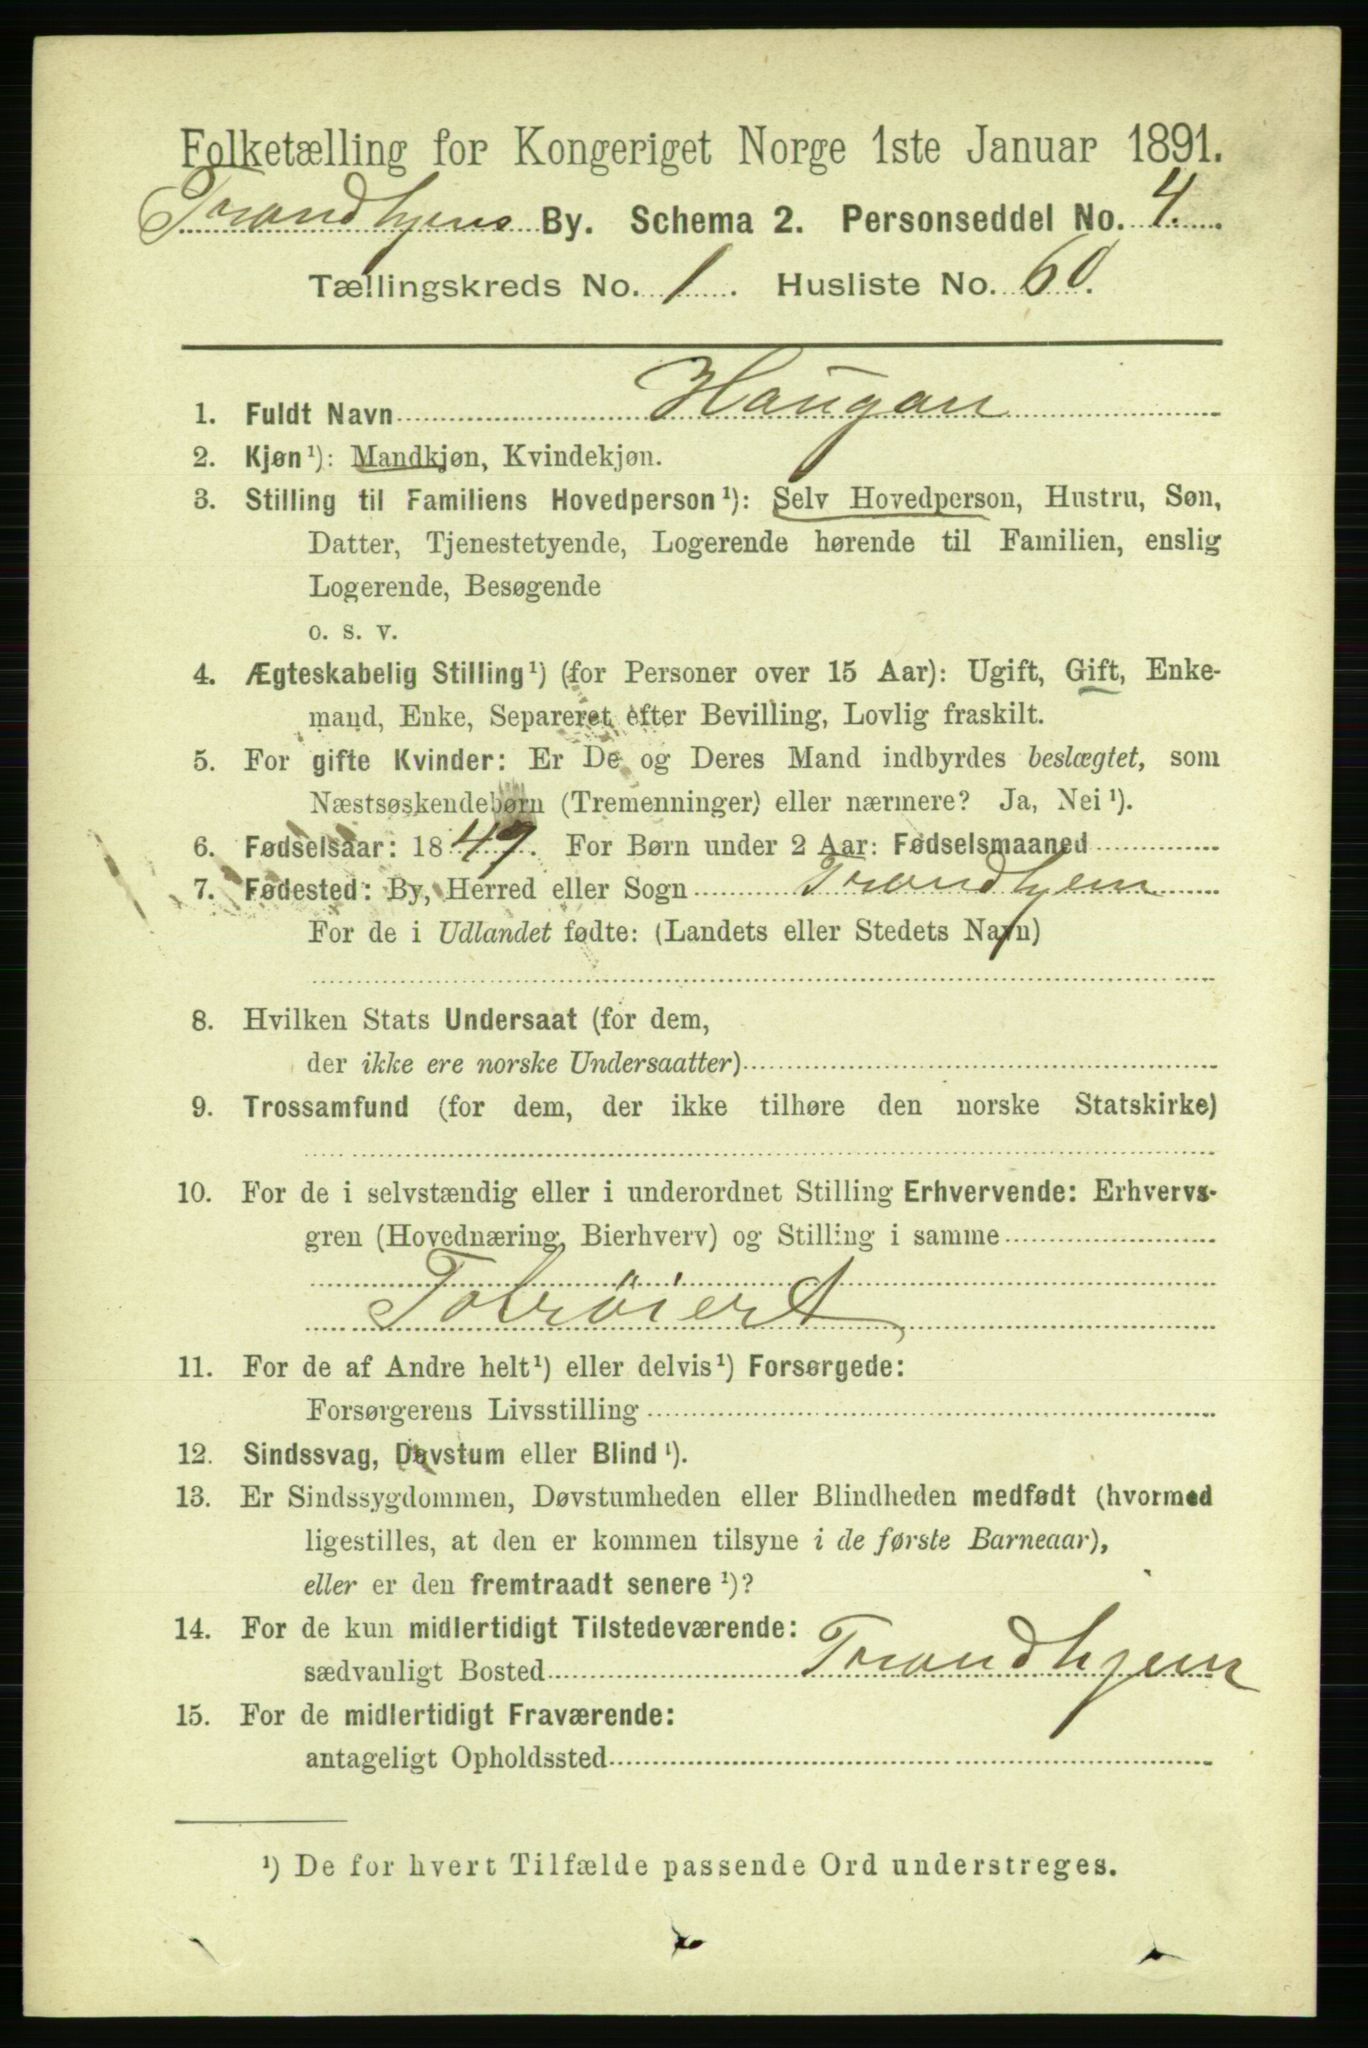 Folketælling for Kongeriget Norge 1ste Januar 1891.
Trondhjems By. Schema 2. Personseddel No. 4.
Tællingskreds No. 1. Husliste No. 60.
1. Fuldt Navn Haugan
2. Kjøn¹): Mandkjøn, Kvindekjøn.
3. Stilling til Familiens Hovedperson¹): Selv Hovedperson, Hustru, Søn,
Datter, Tjenestetyende, Logerende hørende til Familien, enslig
Logerende, Besøgende
o. s. v.
4. Ægteskabelig Stilling¹) (for Personer over 15 Aar): Ugift, Gift, Enke-
mand, Enke, Separeret efter Bevilling, Lovlig fraskilt.
5. For gifte Kvinder: Er De og Deres Mand indbyrdes beslægtet, som
Næstsøskendebørn (Tremenninger) eller nærmere? Ja, Nei¹).
6. Fødselsaar: 1849. For Børn under 2 Aar: Fødselsmaaned
7. Fødested: By, Herred eller Sogn Trondhjem
For de i Udlandet fødte: (Landets eller Stedets Navn)
8. Hvilken Stats Undersaat (for dem,
der ikke ere norske Undersaatter)
9. Trossamfund (for dem, der ikke tilhøre den norske Statskirke)
10. For de i selvstændig eller i underordnet Stilling Erhvervende: Erhvervs-
gren (Hovednæring, Bierhverv) og Stilling i samme
11. For de af Andre helt¹) eller delvis¹) Forsørgede:
Forsørgerens Livsstilling
12. Sindssvag, Døvstum eller Blind¹).
13. Er Sindssygdommen, Døvstumheden eller Blindheden medfødt (hvormed
ligestilles, at den er kommen tilsyne i de første Barneaar),
eller er den fremtraadt senere¹)?
14. For de kun midlertidigt Tilstedeværende:
sædvanligt Bosted Trondhjem
15. For de midlertidigt Fraværende:
antageligt Opholdssted
¹) De for hvert Tilfælde passende Ord understreges.